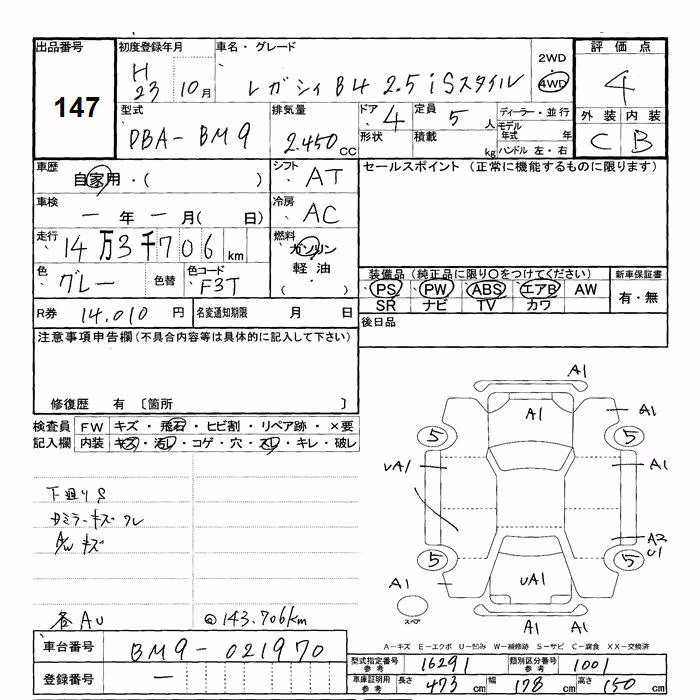 出品番号
147
初度登録年月
H 23 10月
車名・グレード
レガシィB4 2.5iSスタイル
2WD
4WD
評価点
4
外装 内装
C B
型式
DBA-BM9
排気量
2.450 CC
ドア 4
形状
定員 5 人
積載 kg
ディーラー・並行
モデル年式 年
ハンドル 左・右
車歴
自家用・( )
シフト AT
車検
ー年ー月( 日)
冷房 AC
走行
14万3千706 km
燃料
ガソリン
軽油
( )
色 グレー
色替
色コード F3T
R券 14.010 円
名変通知期限 月 日
セールスポイント (正常に機能するものに限ります)
装備品 (純正品に限り〇をつけてください)
PS PW ABS エアB AW
SR ナビ TV カワ
新車保証書
有・無
後日品
注意事項申告欄(不具合内容等は具体的に記入して下さい)
修復歴 有 〔箇所 〕
検査員記入欄
FW キズ・飛石・ヒビ割・リペア跡・×要
内装 キズ・汚レ・コゲ・穴・スレ・キレ・破レ
下廻りS
カミラーキズ ワレ
A/W キズ
各AU
@143.706km
A1
A1
A1
5
5
uA1
A1
A2
U1
5
5
A1
uA1
A1
A1 A1
スペア
A-キズ E-エクボ U-凹み W-補修跡 S-サビ C-腐食 XX-交換済
車台番号 BM9-021970
登録番号 ー
型式指定番号 参考 16291
類別区分番号 参考 1001
車庫証明用 参考 長さ 473 cm 幅 178 cm 高さ 150 cm